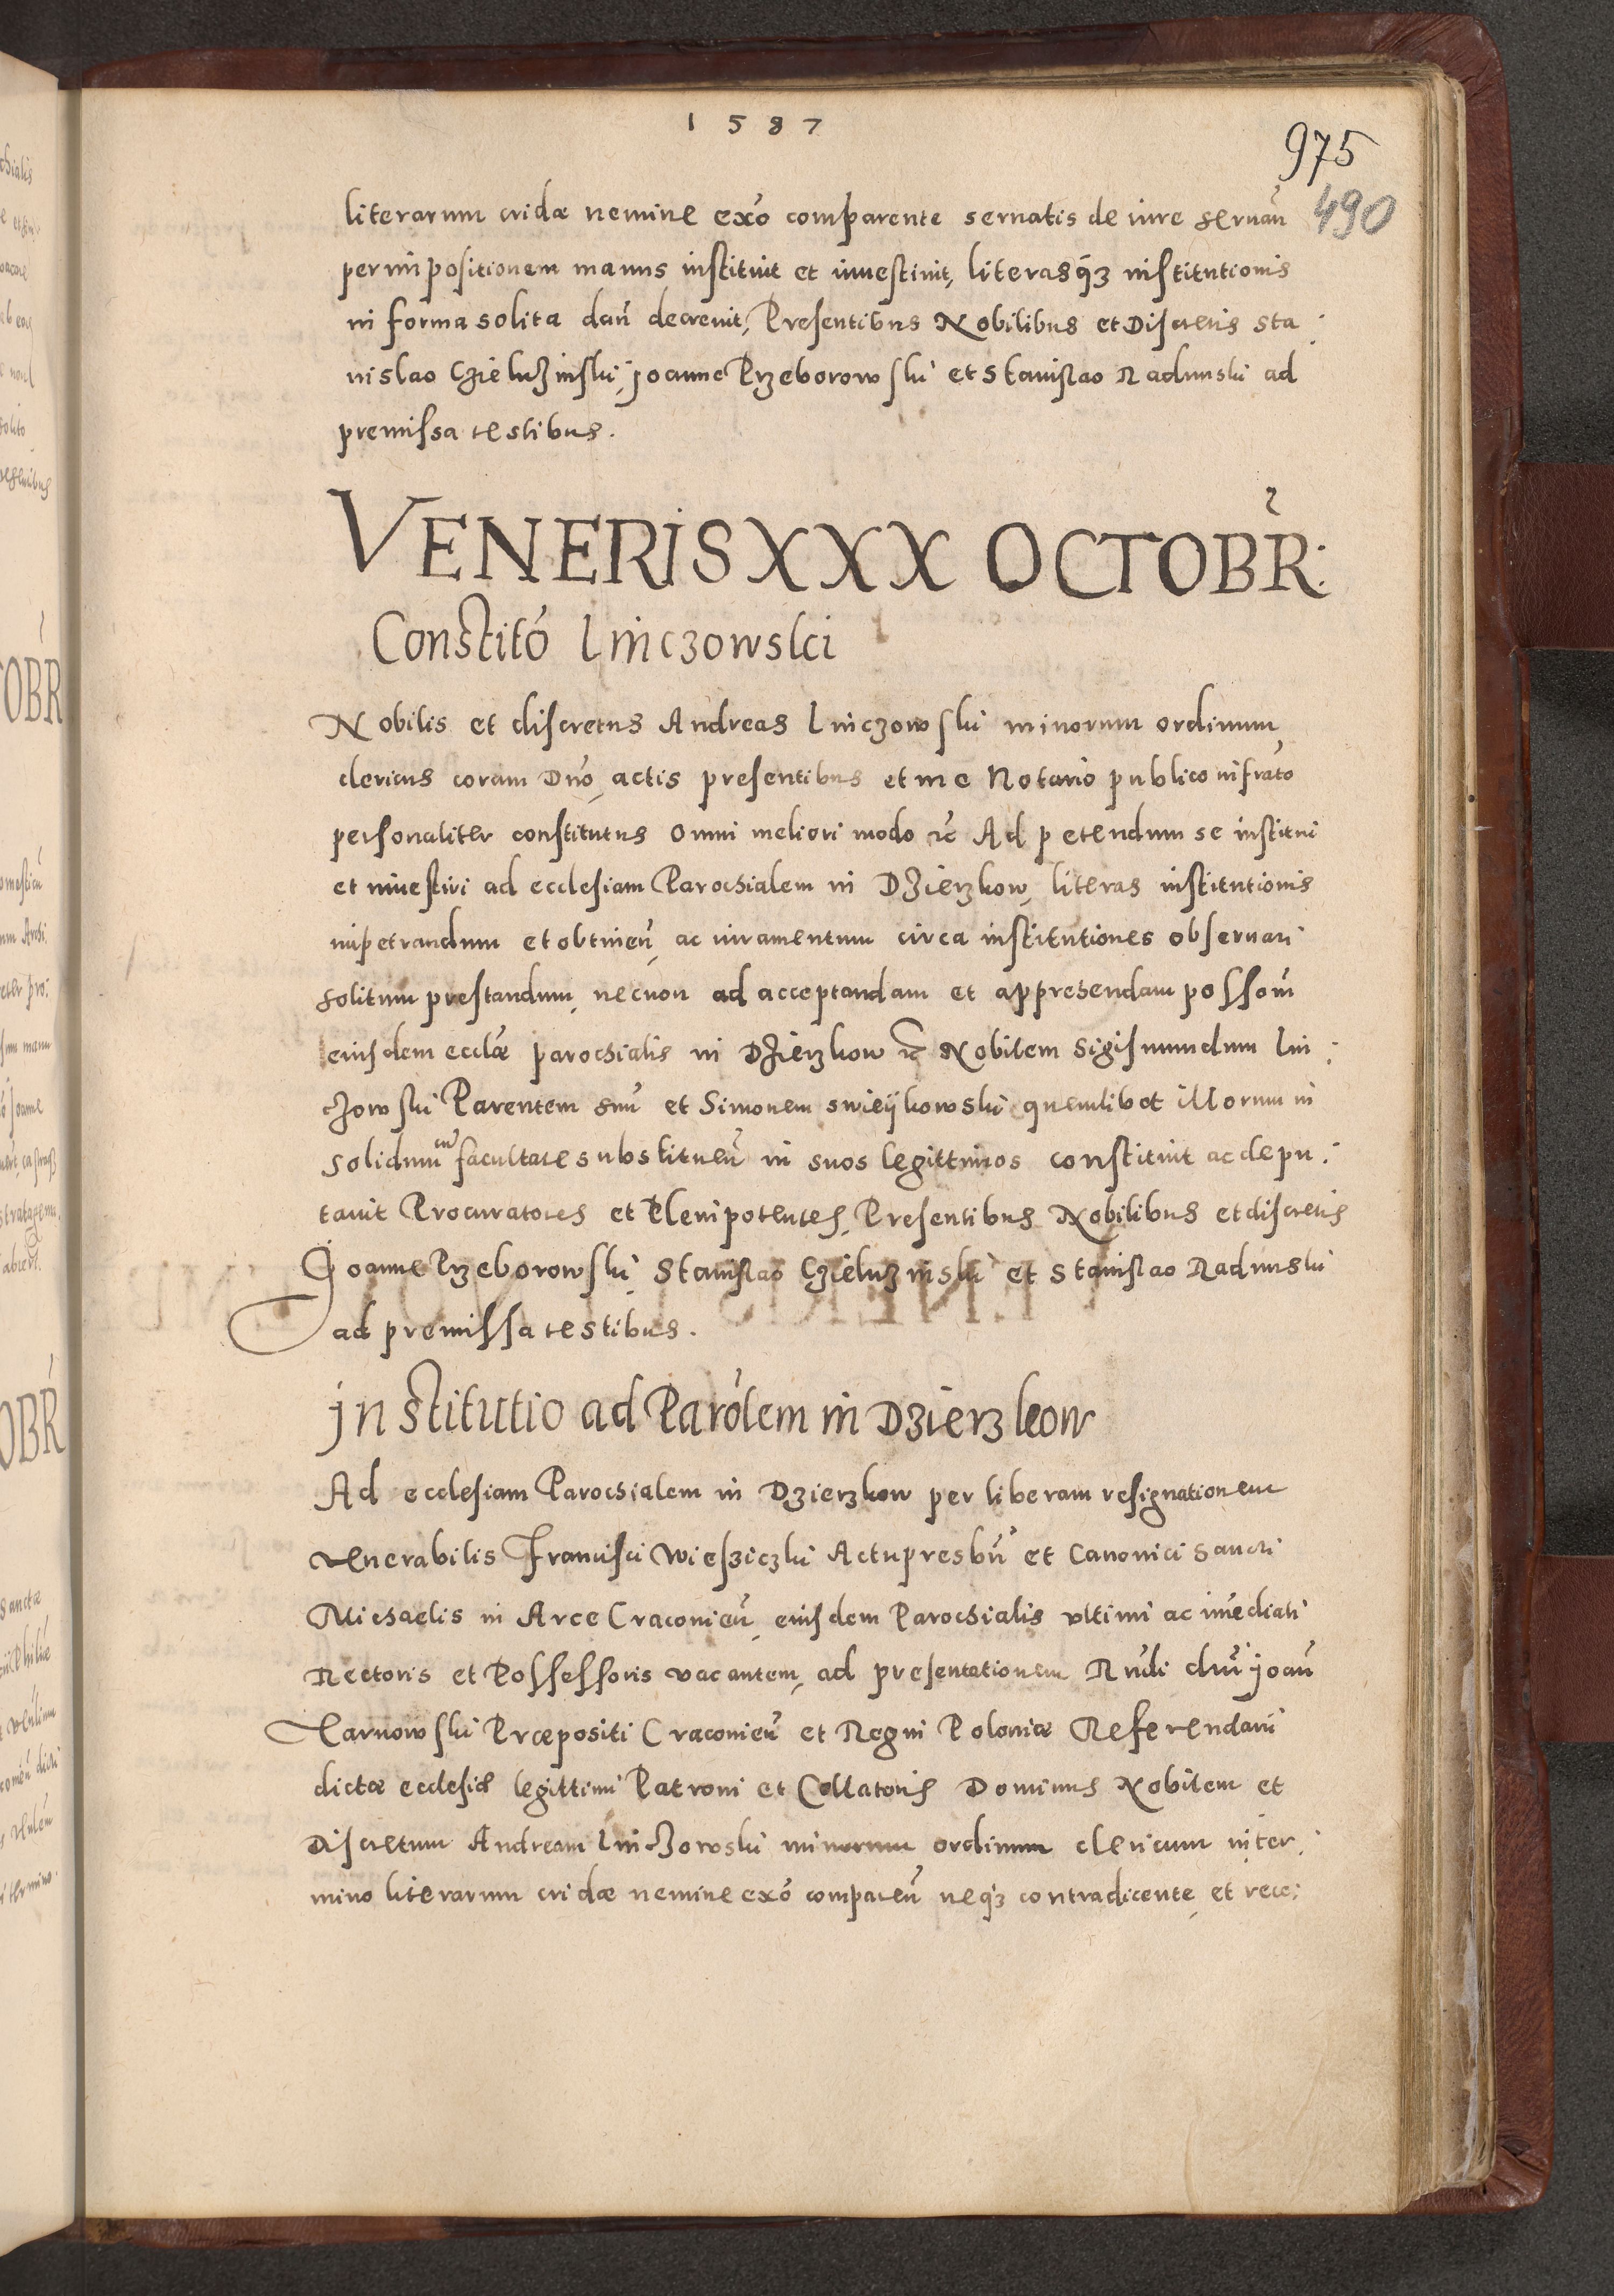 1587
975
490
literarum cridæ nemine exo comparente seruatis de iure seruañ
per impositionem manus instituit et inuestiuit, literasqȝ institutionis
in forma solita dañ decreuit, Presentibus Nobilibus et Discretis Sta
nislao Czieluzinski, Joanne Przeborowski et Stanislao Radunski ad
premissa testibus.
VENERIS XXX OCTOBR:
Constitó Linczowski
Nobilis et discretus Andreas Linczowski minorum ordinum
clericus coram Dnó, actis presentibus et me Notario publico infrató
personaliter constitutus omni meliori modo ꝛc Ad petendum se institui
et inuestiri ad ecclesiam Parochialem in Dzierzkow, literas institutionis
impetrandum et obtineñ, ac iuramentum circa institutiones obseruari
solitum prestandum, necnon ad acceptandam et apprehendam possom̃
eiusdem ecclæ parochialis in Dzierzkow ꝛc Nobilem Sigismundum Lin
czowski Parentem suũ et Simonem swieÿkowski quemlibet illorum in
solidum cũ facultate substitueñ in suos legittimos constituit ac depu
tauit Procuratores et Plenipotentes, Presentibus Nobilibus et discretis
Joanne Przeborowski, Stanislao Czieluzinski et Stanislao Radunski
ad premissa testibus.
Institutio ad Parólem in Dzierzkow
Ad ecclesiam Parochialem in Dzierzkow per liberam resignationem
Venerabilis Francisci Wiesziczki Actu presbrĩ et Canonici Sancti
Michaelis in Arce Cracovieñ, eiusdem Parochialis vltimi ac imẽdiati
Rectoris et Possessoris vacantem, ad presentationem Rndi dñi Joañ
Tarnowski Præpositi Cracovieñ et Regni Poloniæ Referendarii
dictæ ecclesiæ legittimi Patroni et Collatoris Dominus Nobilem et
Discretum Andream Linczowski minorum ordinum clericum in ter
mino literarum cridæ nemine exó compareñ neqȝ contradicente, et rece